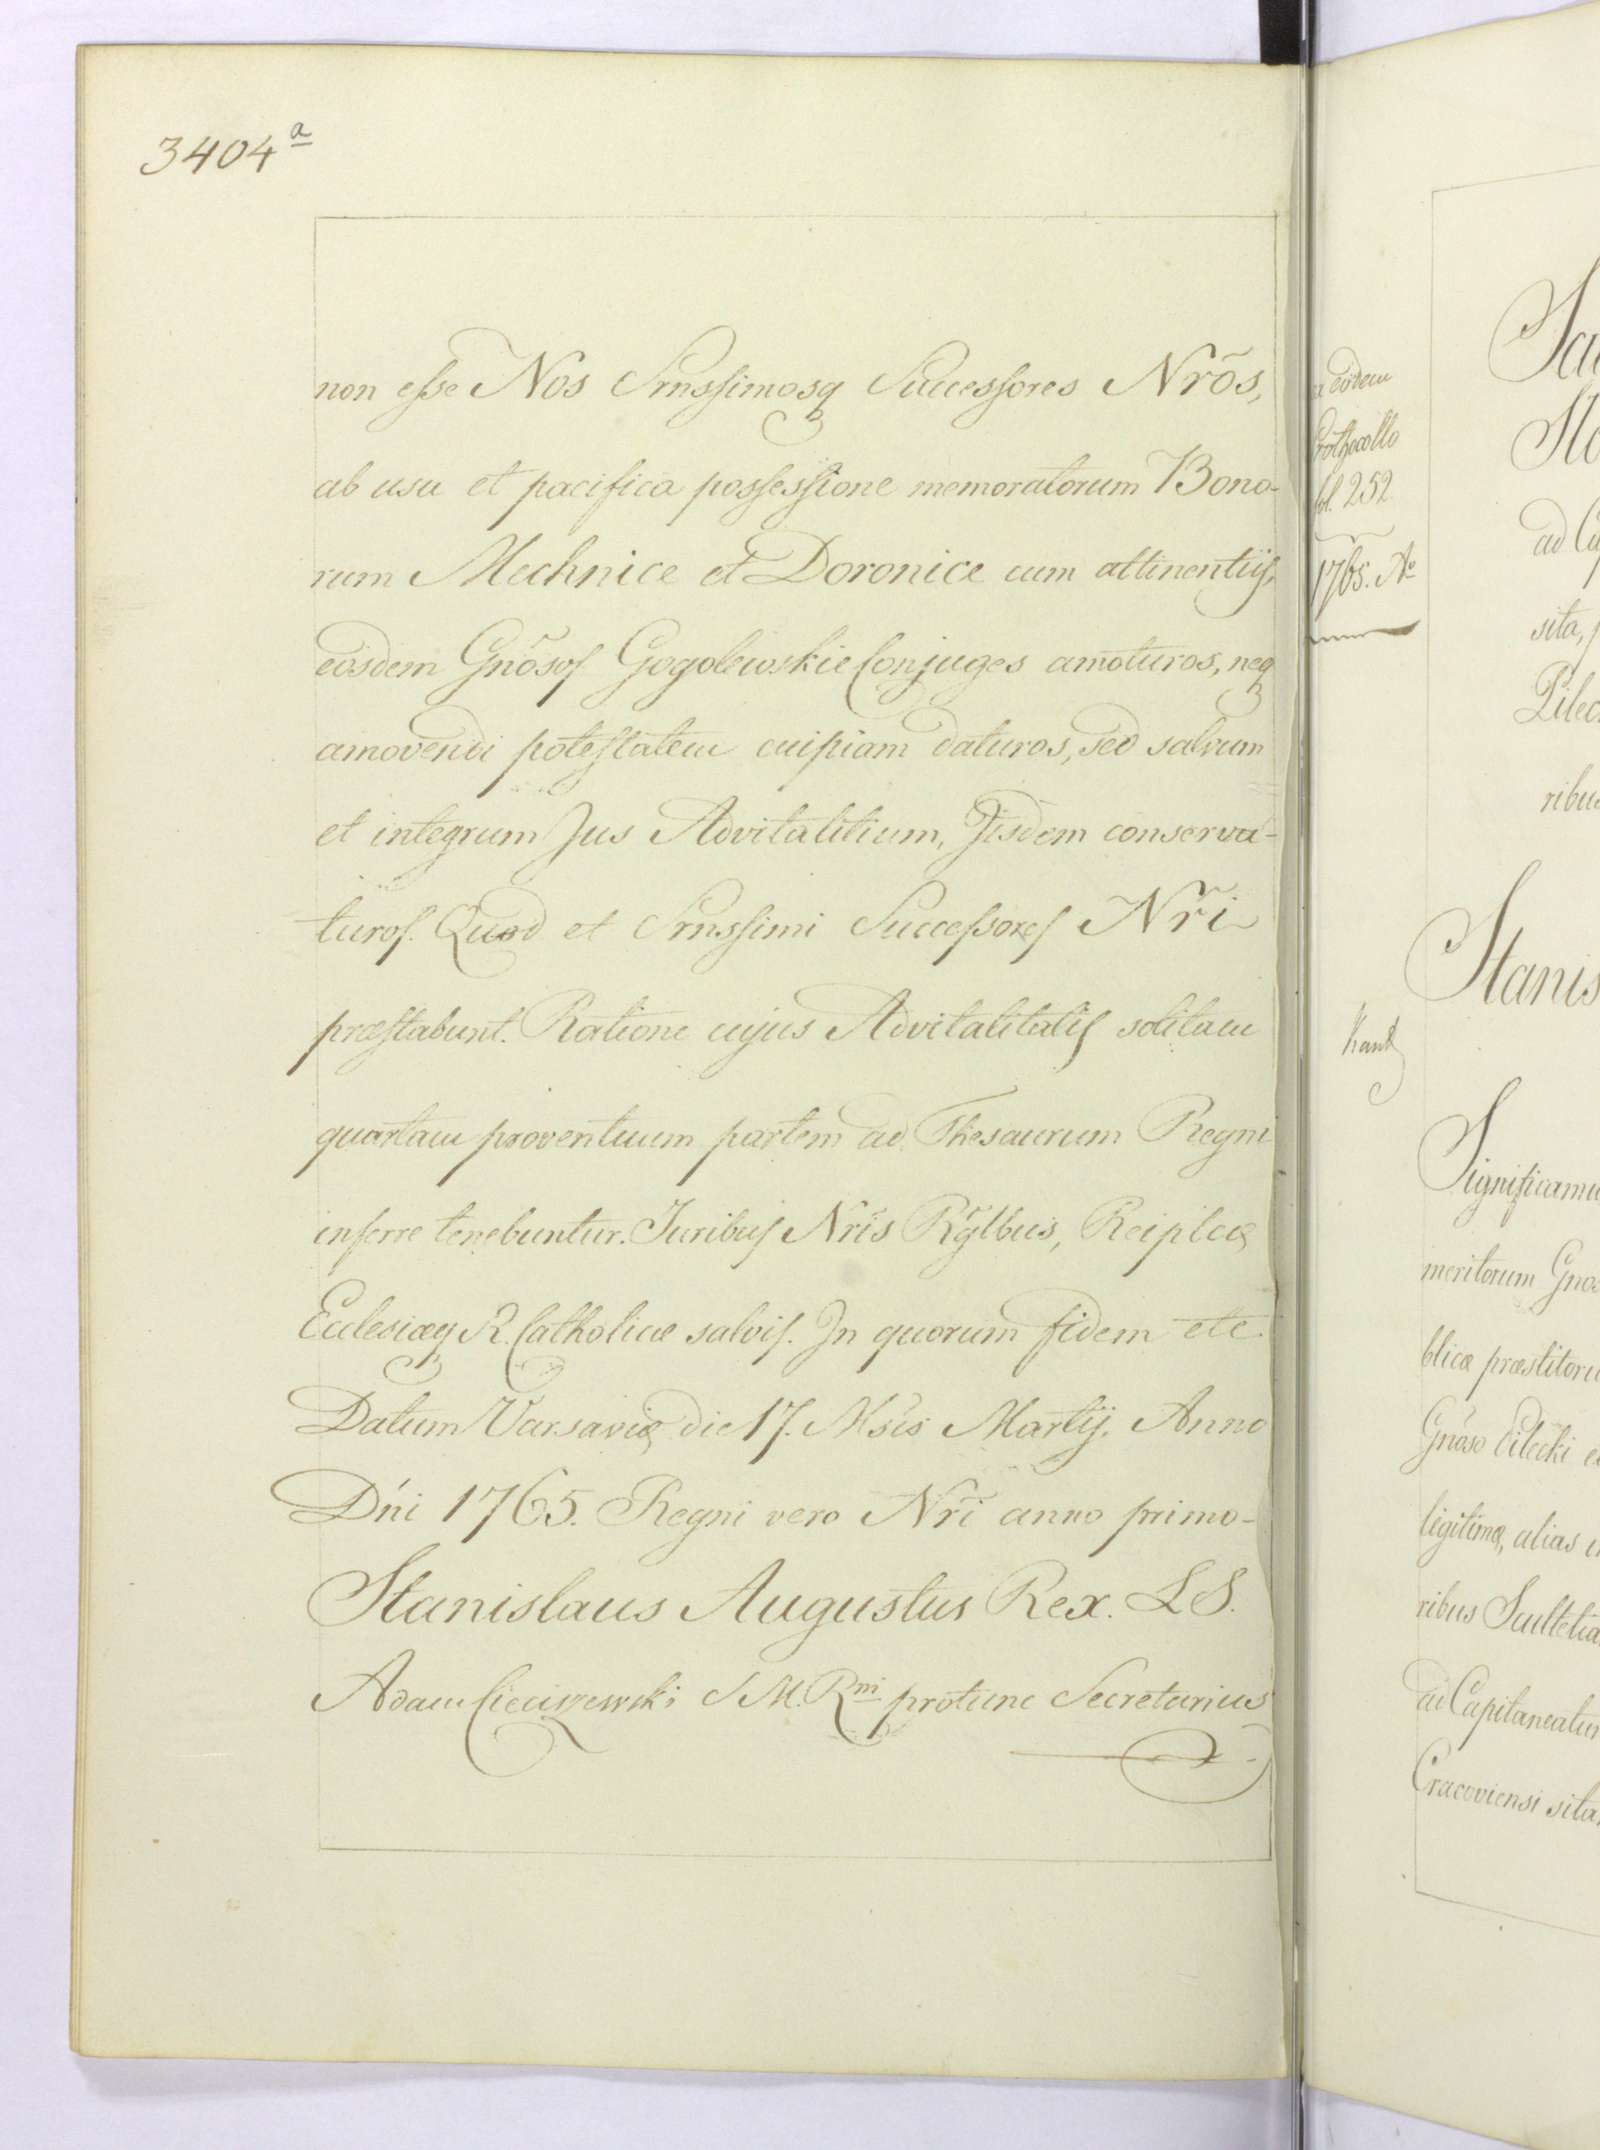 3404a
non esse Nos Srnssimosq Successores Nrõs,
ab usu et pacifica possessione memoratorum Bono-
rum Mechnice et Doronice cum attinentijs,
eosdem Gnõsos Gogolewskie Conjuges amoturos, neq
amovendi potestatem cuipiam daturos, sed salvum
et integrum Jus Advitalitium, Jisdem conserva-
turos. Quod et Srnssimi Successores Nri
præstabunt. Ratione cujus Advitalitatis solitam
quartam proventuum partem ad Thesaurum Regni
inferre tenebuntur. Juribus Nris Rglbus, Reiplcæ
Ecclesiæq R. Catholicæ salvis. In quorum fidem etc.
Datum Varsaviæ die 17. Msis Martij. Anno
Dni 1765. Regni vero Nri anno primo-
Stanislaus Augustus Rex. LS.
Adam Cieciszewski S M. Rni protunc Secretarius
eodem
Prothocollo
fol. 252
1765. Ao
Sta
ad Ca
sita,
Pilec
ribus
Stanis
Significamu
meritorum Gnos
blicæ præstitoru
Gnoso Pilecki e
legitimæ, alias
ribus Scultetia
ad Capitaneatu
Cracoviensi sita